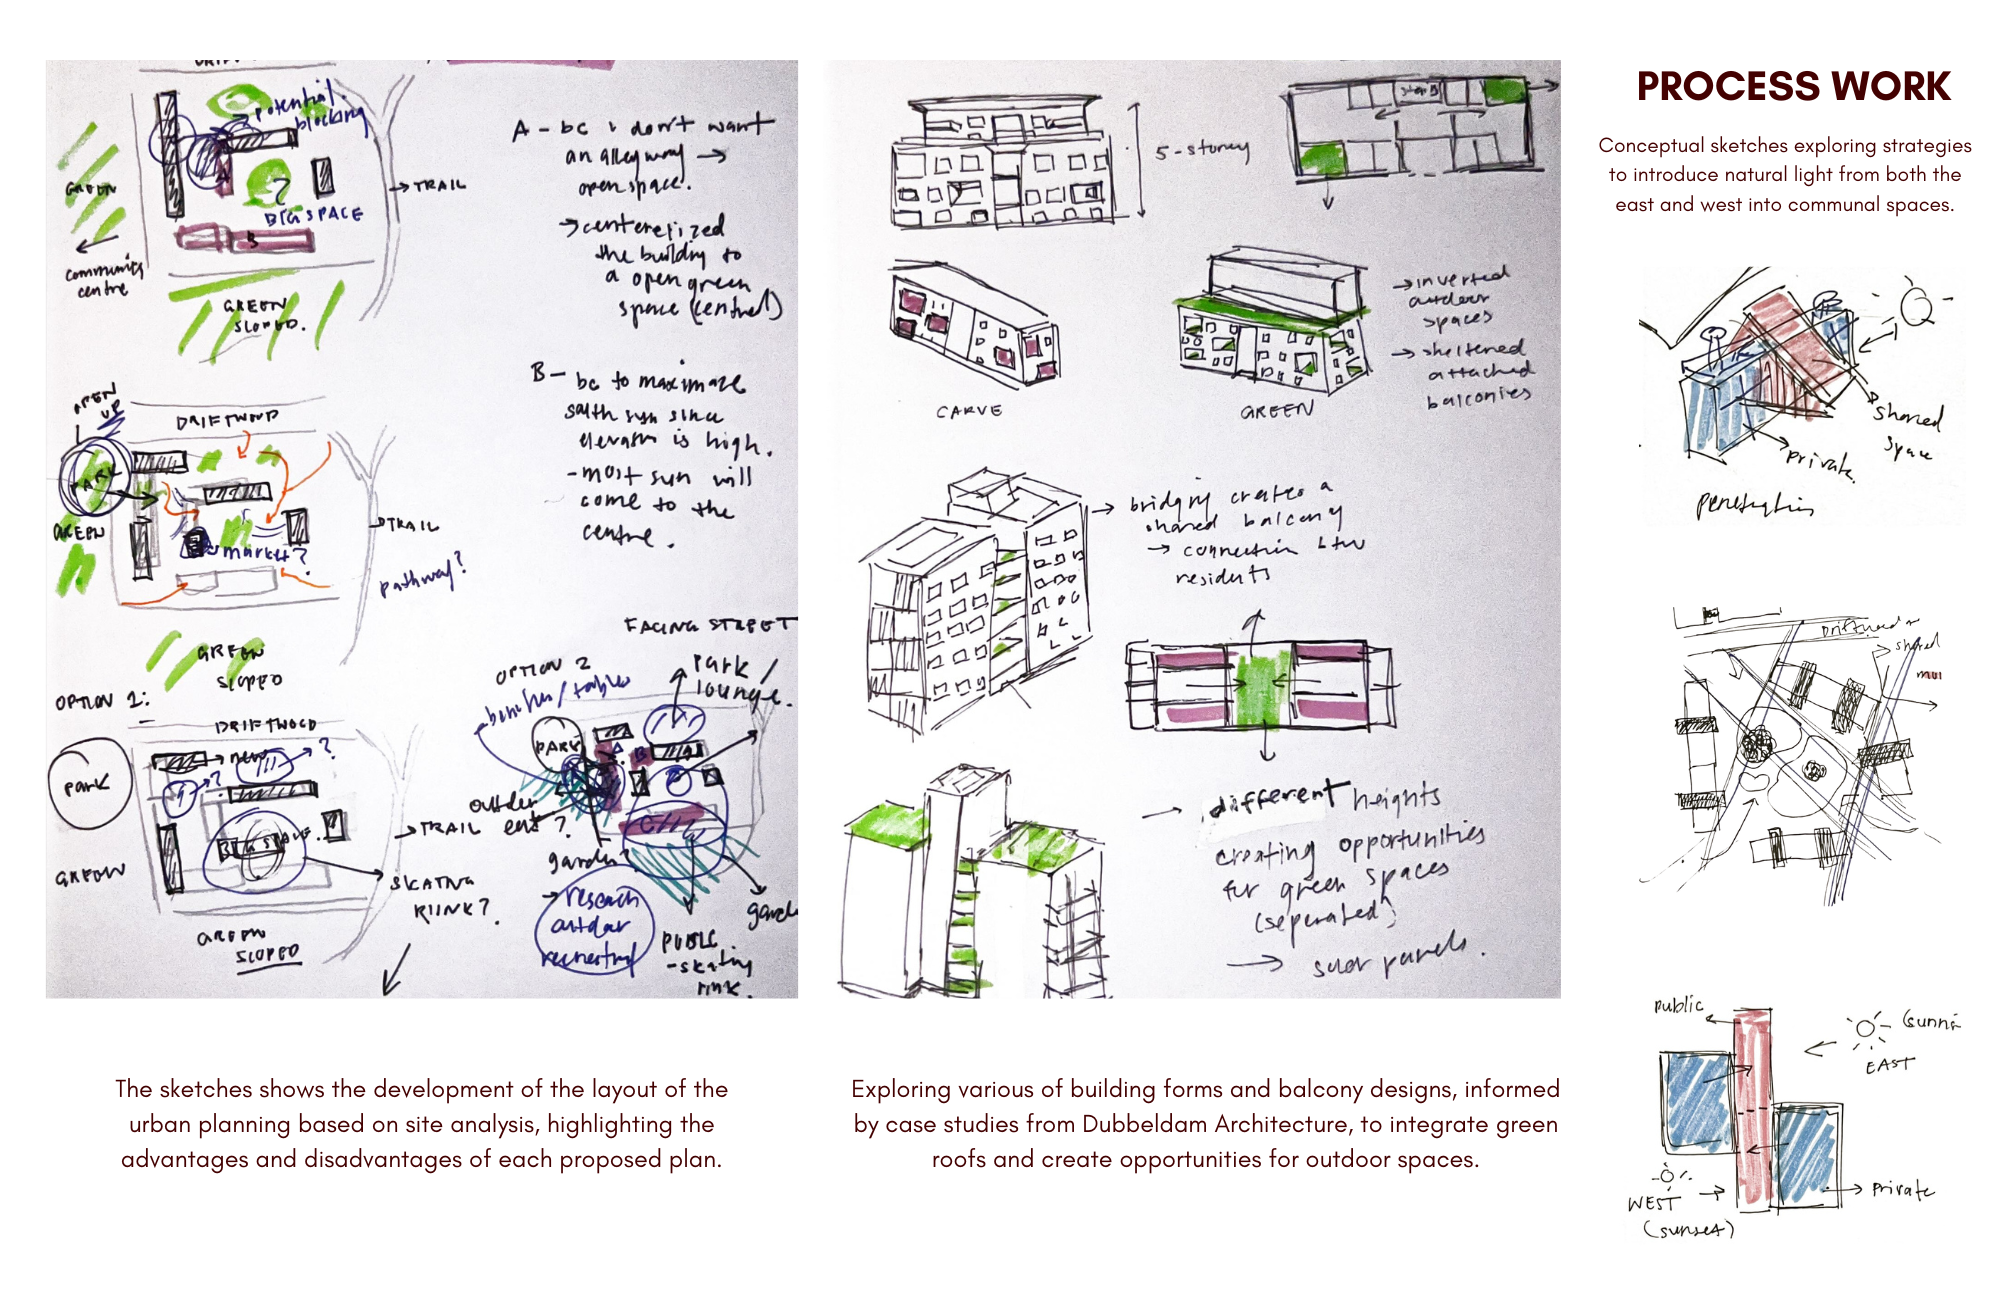 PROCESS WORK
Conceptual sketches exploring strategies
to introduce natural light from both the
east and west into communal spaces.
potential
blocking
GREEN
BIG SPACE
?
A
B
→ TRAIL
community
centre
GREEN
SLOPED.
A - bc i don't want
an alleyway →
open space.
→ centerelized
the building to
a open green
space (central)
B - bc to maximize
south sun since
elevation is high.
- most sun will
come to the
centre.
OPEN
UP
DRIFTWOOD
PARK
GREEN
market?
TRAIL
pathway?
GREEN
SLOPED
OPTION 1:
DRIFTWOOD
park
→ new
?
?
BIG SPACE
→ TRAIL
GREEN
SKATING
RIINK?
GREEN
SLOPED
FACING STREET
OPTION 2
benches/tables
park /
lounge.
PARK
A
B
C
outdoor
eat?
garden?
→ research
outdoor
PUBLIC
- skating
rink.
5-storey
shop
CARVE
GREEN
→ inverted
outdoor
spaces
→ sheltered
attached
balconies
→ bridging creates a
shared balcony
→ connection btw
residents
→ different heights
creating opportunities
for green spaces
(seperated)
→ solar panels.
shared
space
private
penetration
Driftwood
shared
public
EAST
WEST
(sunset)
private
The sketches shows the development of the layout of the
urban planning based on site analysis, highlighting the
advantages and disadvantages of each proposed plan.
Exploring various of building forms and balcony designs, informed
by case studies from Dubbeldam Architecture, to integrate green
roofs and create opportunities for outdoor spaces.